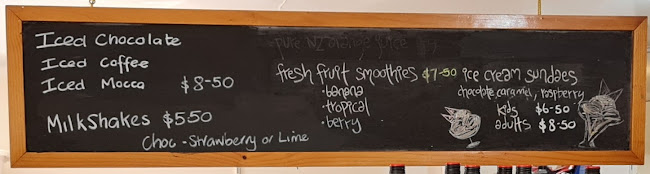 Iced Chocolate
Iced Coffee
Iced Mocca $8-50
MilkShakes $5.50
Choc - Strawberry or Lime
pure NZ orange juice
fresh fruit smoothies $7-50
• banana
• tropical
• berry
ice cream sundaes
chocolate, caramel, raspberry
kids $6-50
adults $8-50